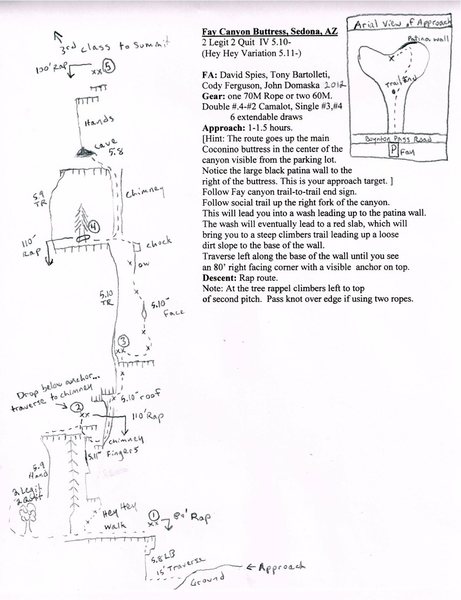 Fay Canyon Buttress, Sedona, AZ
2 Legit 2 Quit IV 5.10-
(Hey Hey Variation 5.11-)
FA: David Spies, Tony Bartolleti,
Cody Ferguson, John Domaska 2012
Gear: one 70M Rope or two 60M.
Double #.4-#2 Camalot, Single #3,#4
6 extendable draws
Approach: 1-1.5 hours.
[Hint: The route goes up the main
Coconino buttress in the center of the
canyon visible from the parking lot.
Notice the large black patina wall to the
right of the buttress. This is your approach target. ]
Follow Fay canyon trail-to-trail end sign.
Follow social trail up the right fork of the canyon.
This will lead you into a wash leading up to the patina wall.
The wash will eventually lead to a red slab, which will
bring you to a steep climbers trail leading up a loose
dirt slope to the base of the wall.
Traverse left along the base of the wall until you see
an 80' right facing corner with a visible anchor on top.
Descent: Rap route.
Note: At the tree rappel climbers left to top
of second pitch. Pass knot over edge if using two ropes.
Arial View of Approach
Patina wall
Trail End
Boynton Pass Road
P
Fay
3rd class to Summit
100' Rap
xx 5
Hands
cave
5.8
5.9
TR
chimney
4
110'
Rap
chock
OW
5.10
TR
5.10-
Face
3
xx
Drop below anchor...
traverse to chimney
5.10- roof
2
xx
110' Rap
chimney
5.11- Fingers
5.9
Hand
2 Legit
2 Quit
Hey Hey
Walk
1
xx
80' Rap
5.8 LB
15' Traverse
Approach
Ground